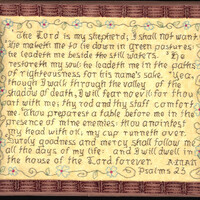 The Lord is my shepherd; I shall not want
He maketh me to lie down in green pastures;
he leadeth me beside the still waters. He
restoreth my soul: he leadeth me in the paths
of righteousness for his name's sake. Yea,
though I walk through the valley of the
shadow of death, I will fear no evil: for thou
art with me; thy rod and thy staff comfort
me. Thou preparest a table before me in the
presence of mine enemies: thou anointest
my head with oil; my cup runneth over.
Surely goodness and mercy shall follow me
all the days of my life: and I will dwell in
the house of the Lord forever.
Psalms 23